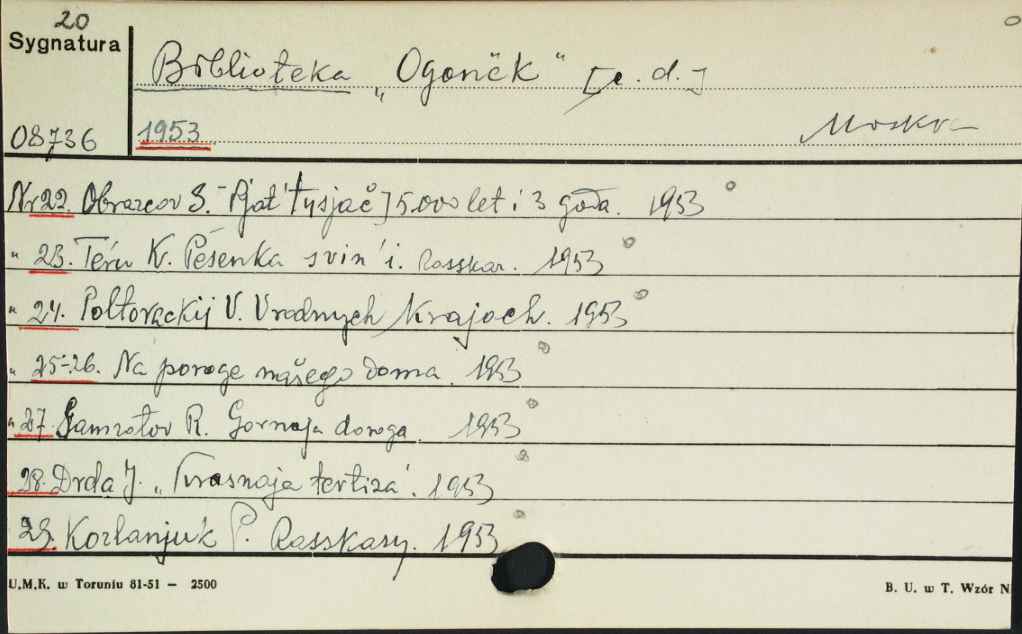 20
Sygnatura
Biblioteka „Ogonëk" [c. d.]
08736
1953
Moskva
Nr 22. Obrazcov S. - Pjat' tysjač] 5.000 let i 3 goda. 1953
" 23. Téru K. Pésenka svin'i. Rasskaz. 1953
" 24. Poltorackij V. V rodnych krajach. 1953
" 25-26. Na poroge našego doma. 1953
" 27. Gamzatov R. Gornaja doroga. 1953
" 28. Drda J. „Krasnaja tertiza". 1953
" 29. Kozlanjuk P. Rasskazy. 1953
U.M.K. w Toruniu 81-51 — 2500
B. U. w T. Wzór N